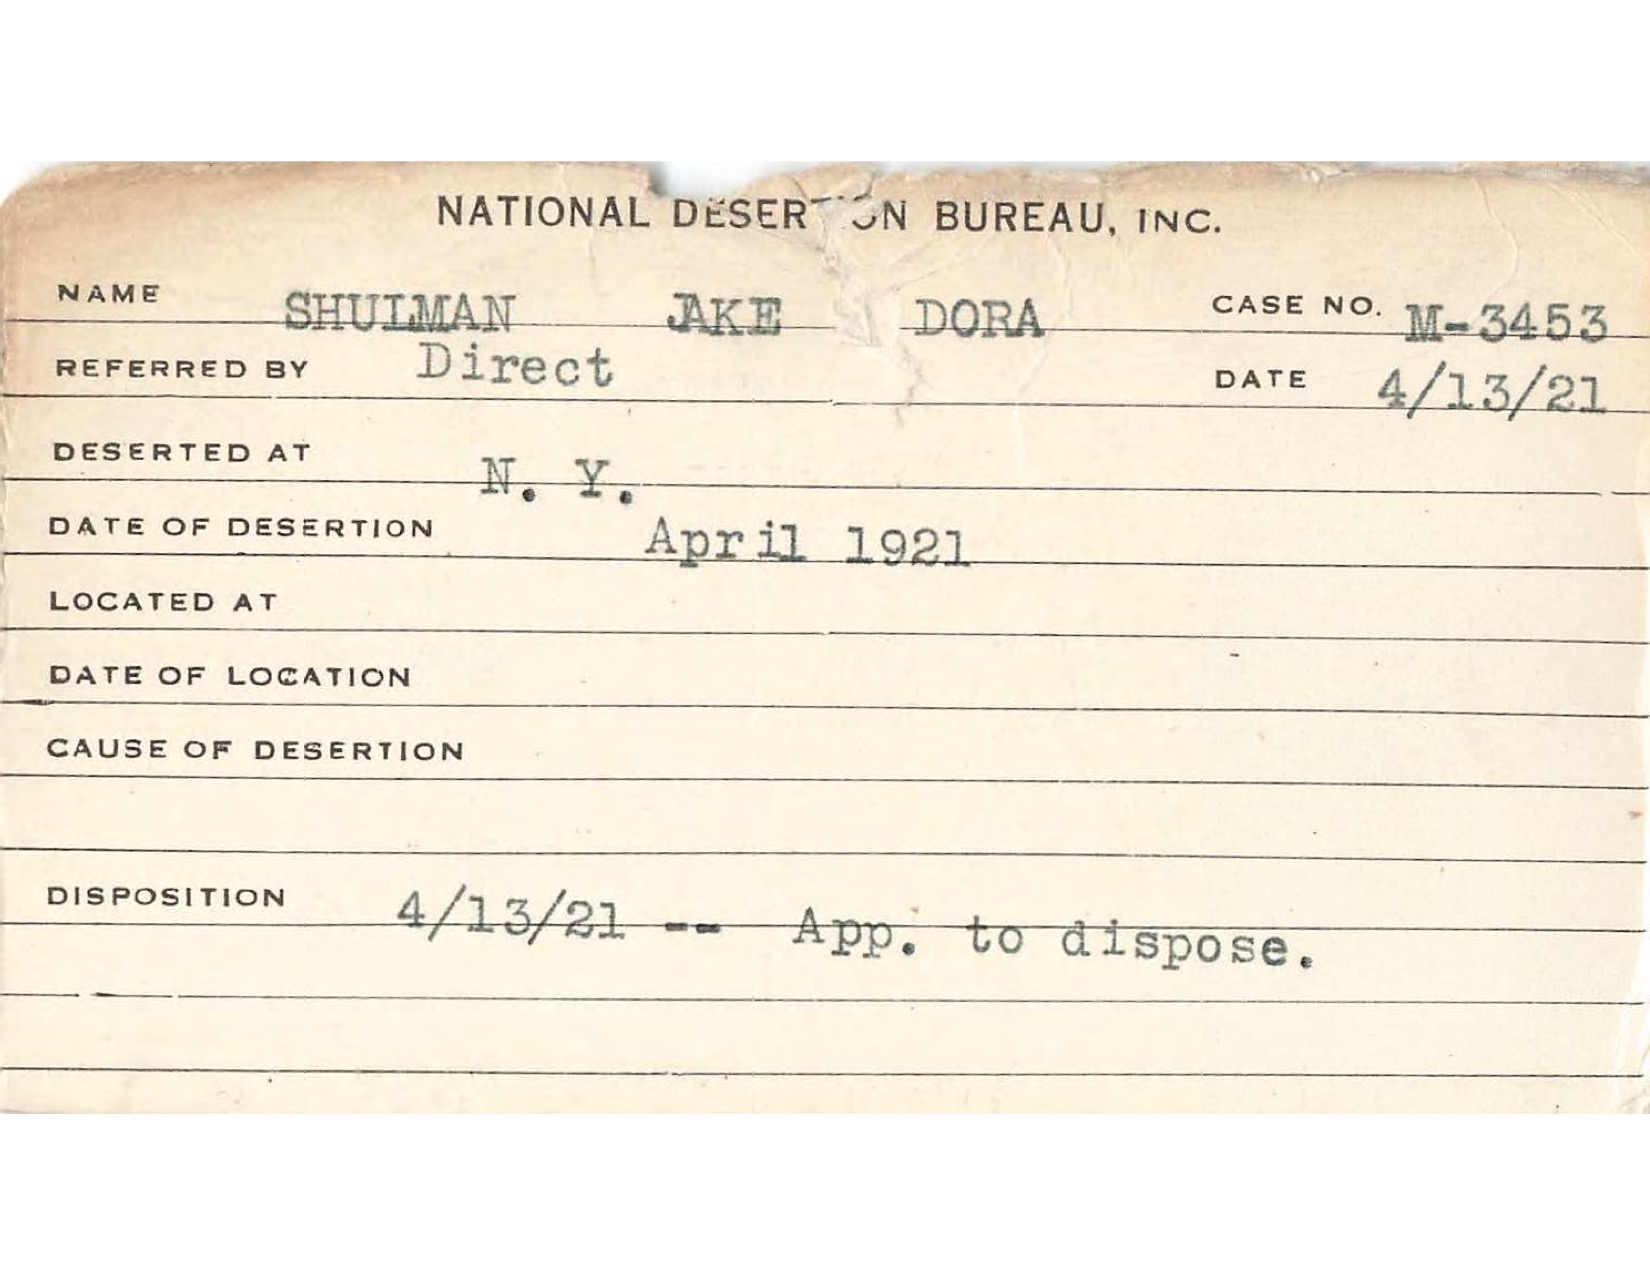 NATIONAL DESERTION BUREAU, INC.
NAME SHULMAN JAKE DORA CASE NO. M-3453
REFERRED BY Direct DATE 4/13/21
DESERTED AT N. Y.
DATE OF DESERTION April 1921
LOCATED AT
DATE OF LOCATION
CAUSE OF DESERTION
DISPOSITION 4/13/21 -- App. to dispose.